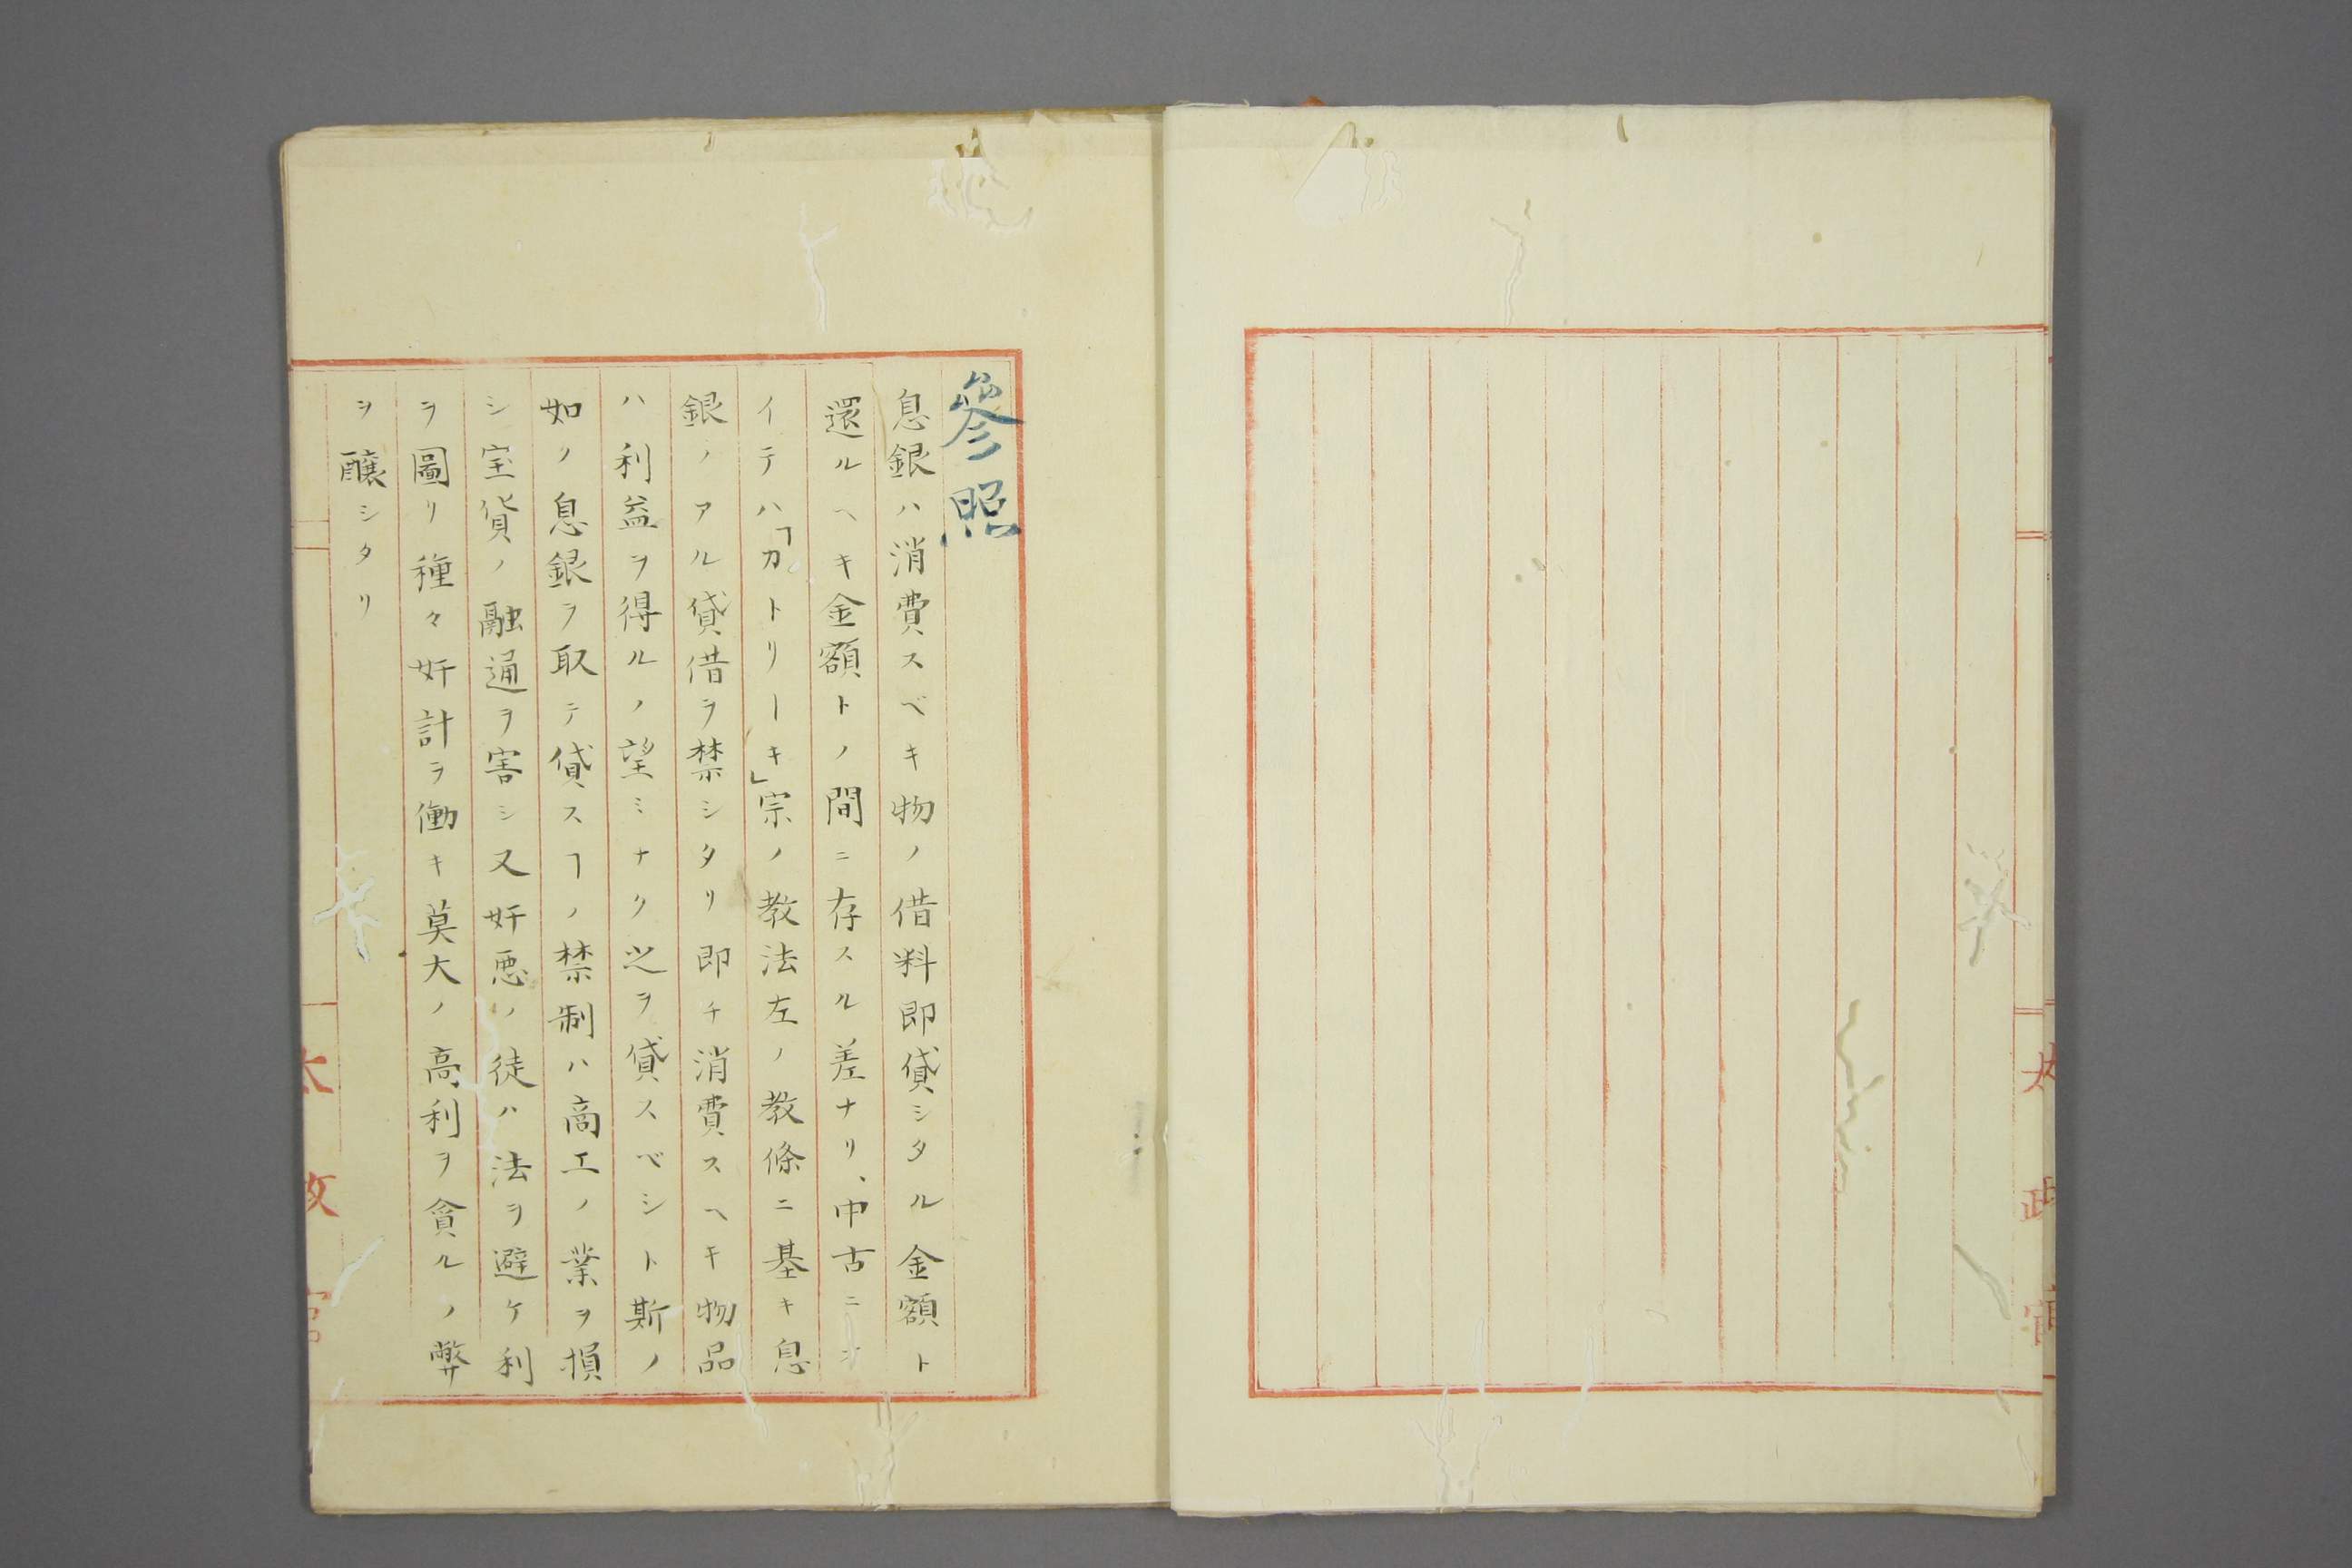 太政官
參照
息銀ハ消費スベキ物ノ借料即貸シタル金額ト
還ルヘキ金額トノ間ニ存スル差ナリ、中古ニ
イテハ「カトリーキ」宗ノ教法左ノ教條ニ基キ息
銀ノアル貸借ヲ禁シタリ即チ消費スヘキ物品
ハ利益ヲ得ルノ望ミナク之ヲ貸スベシト斯ノ
如ノ息銀ヲ取テ貸スヿノ禁制ハ商工ノ業ヲ損
シ宝貨ノ融通ヲ害シ又奸悪ノ徒ハ法ヲ避ケ利
ヲ圖リ種々奸計ヲ働キ莫大ノ高利ヲ貪ルノ弊
ヲ醸シタリ
太政官